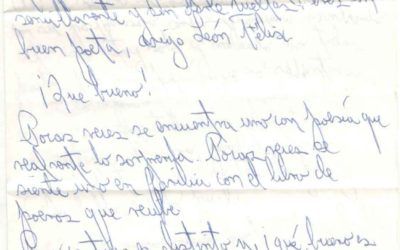 y sin
buen poeta, amigo León Félix.
¡Que bueno!
Pocas veces se encuentra uno con poesía que
realmente lo sorprenda. Pocas veces se
siente uno en familia con el libro de
poemas que recibe.
es distinto y ¡qué bueno es